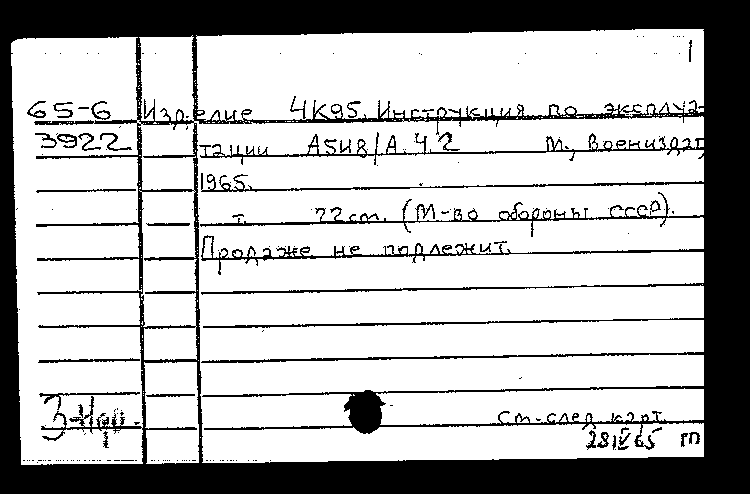 1
65-6 Изделие 4К95. Инструкция по эксплуа-
3922 тации А5И8/А. Ч.2 М., Воениздат,
1965.
т. 72 cm. (М-во обороны СССР).
Продаже не подлежит.
См-след карт.